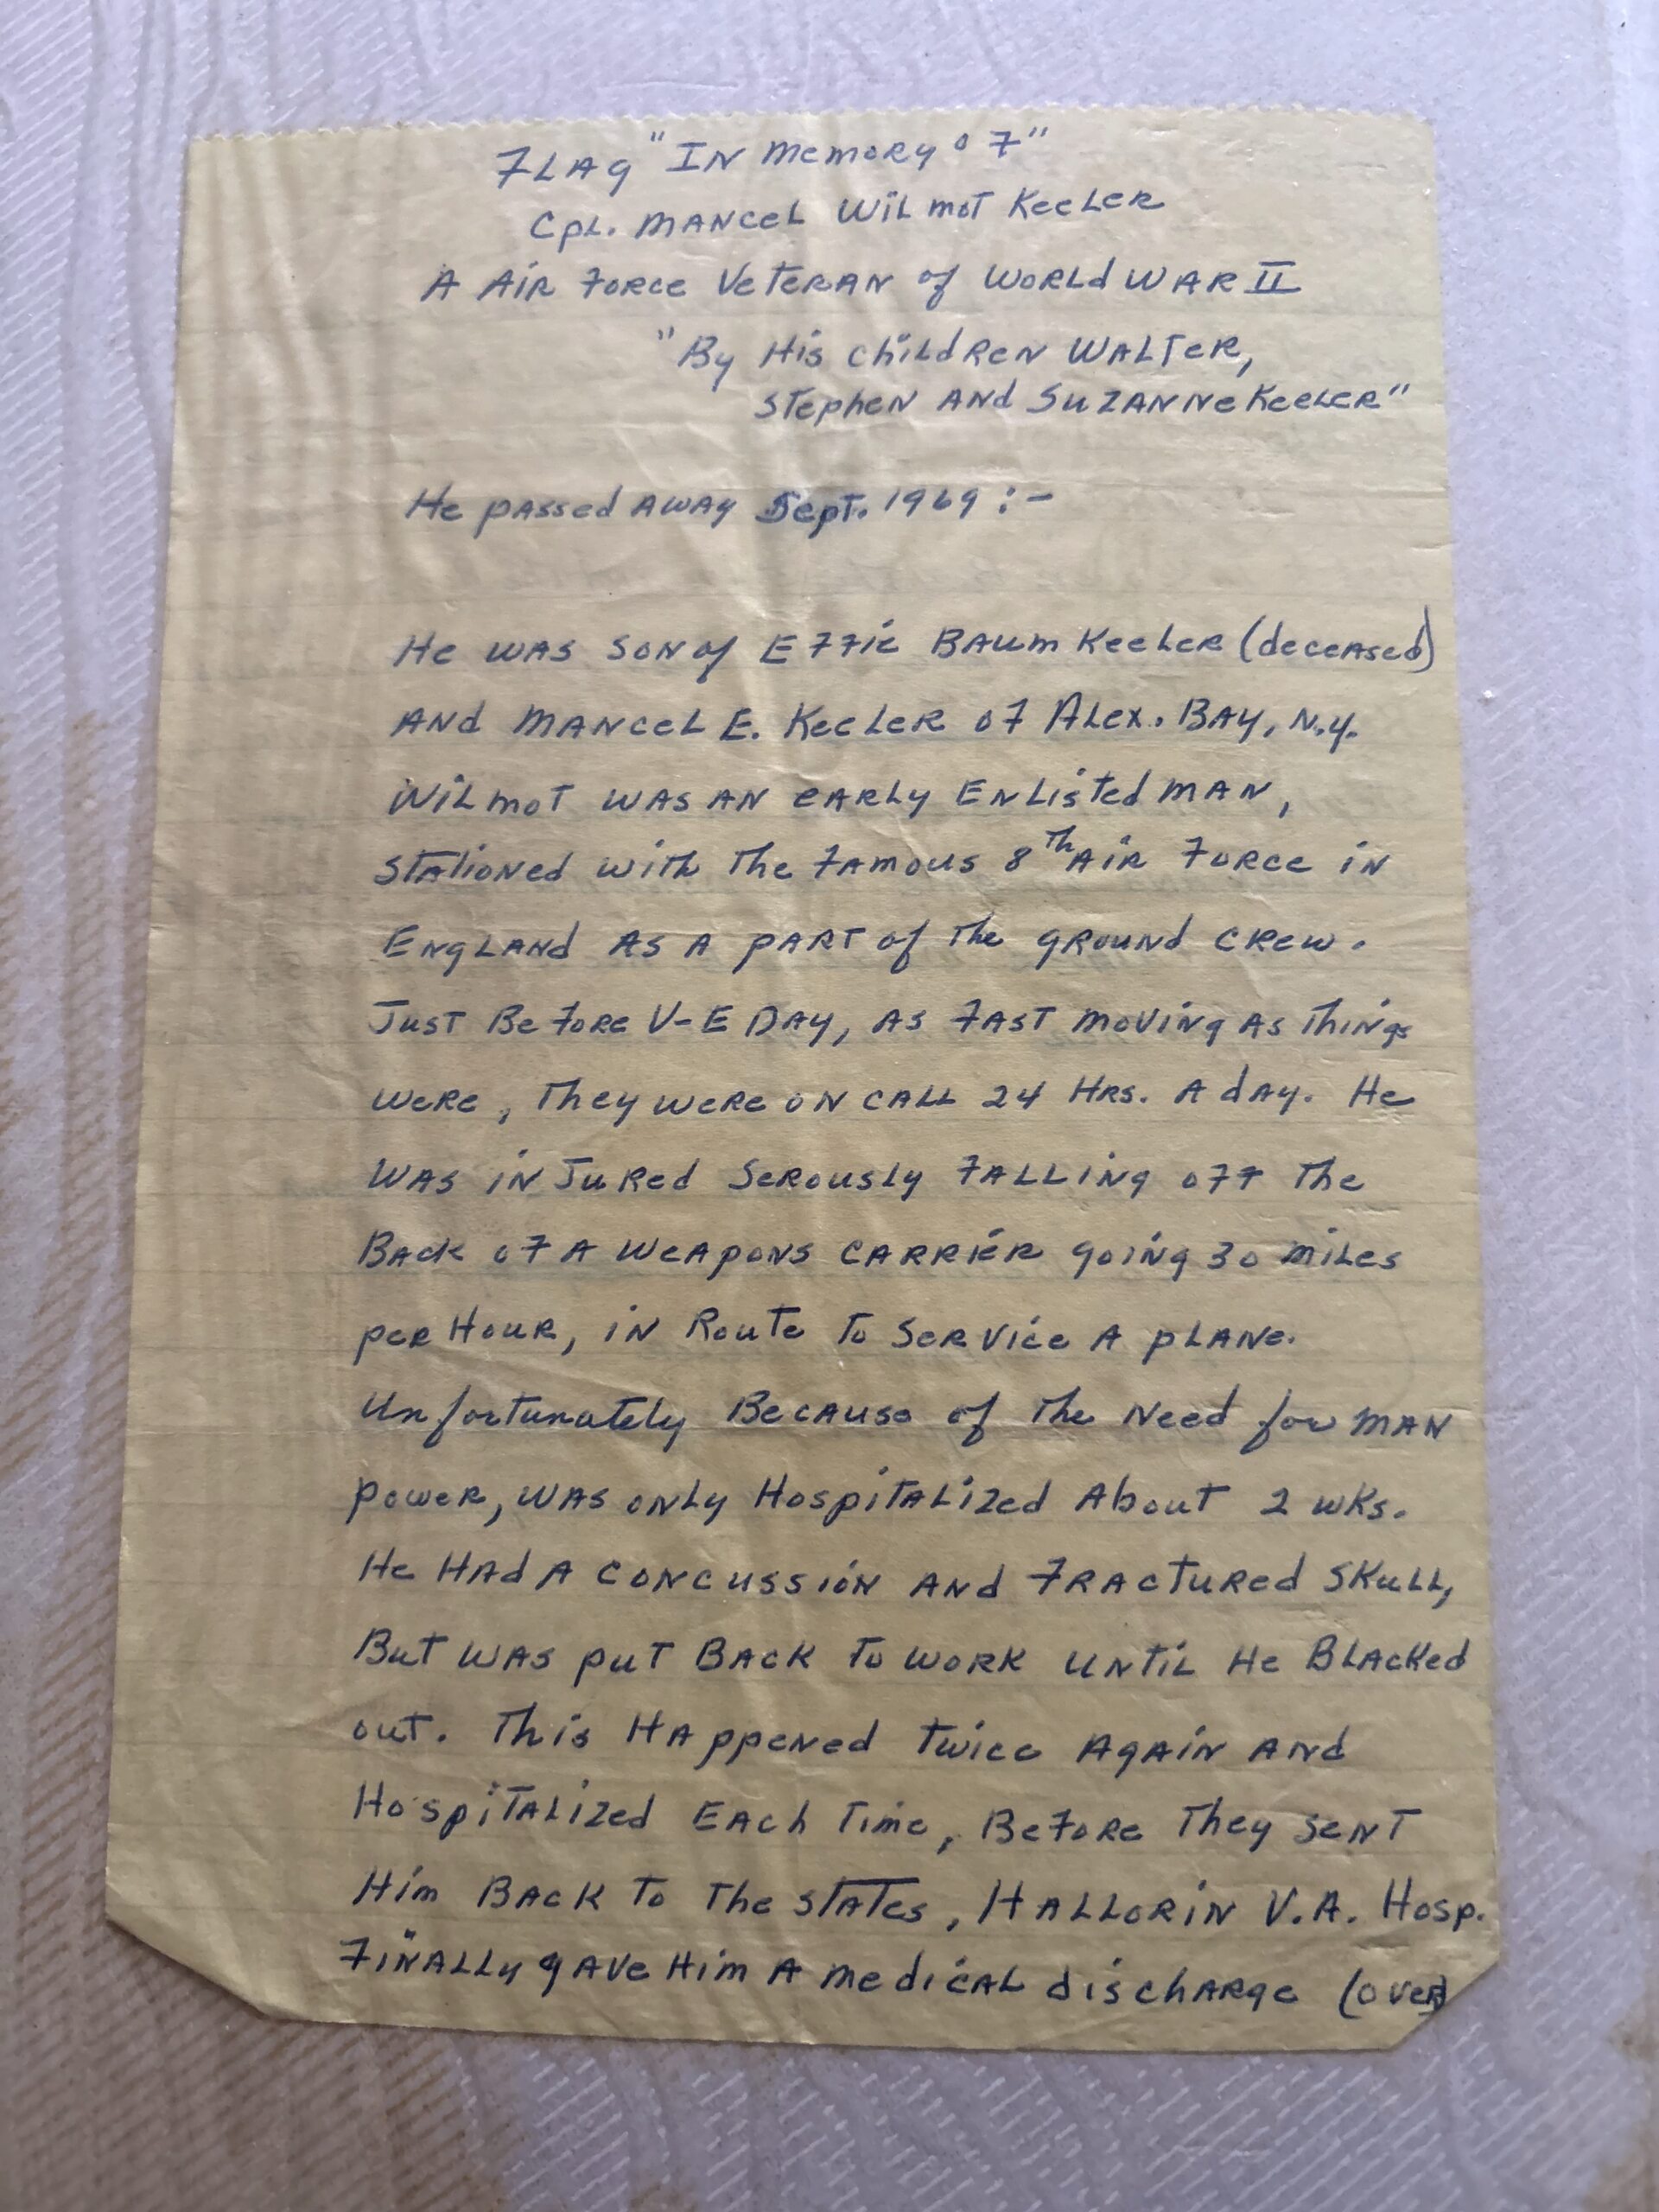 Flag "In Memory of"
Cpl. Mancel Wilmot Keeler
A Air Force Veteran of World War II
"By His children Walter,
Stephen and Suzanne Keeler"
He passed away Sept. 1969 :-
He was son of Effie Baum Keeler (deceased)
and Mancel E. Keeler of Alex. Bay, N.Y.
Wilmot was an early Enlisted man,
stationed with the famous 8th Air Force in
England as a part of the ground crew.
Just Before V-E Day, as fast moving as things
were, they were on call 24 Hrs. a day. He
was injured serously falling off the
Back of a weapons carrier going 30 miles
per Hour, in Route to service a plane.
Unfortunately Because of the Need for man
power, was only Hospitalized About 2 wks.
He Had a concussion and fractured skull,
But was put Back to work until He Blacked
out. This Happened twice Again and
Hospitalized Each time, Before they sent
Him Back to the states, Hallorin V.A. Hosp.
Finally gave Him a medical discharge (over)